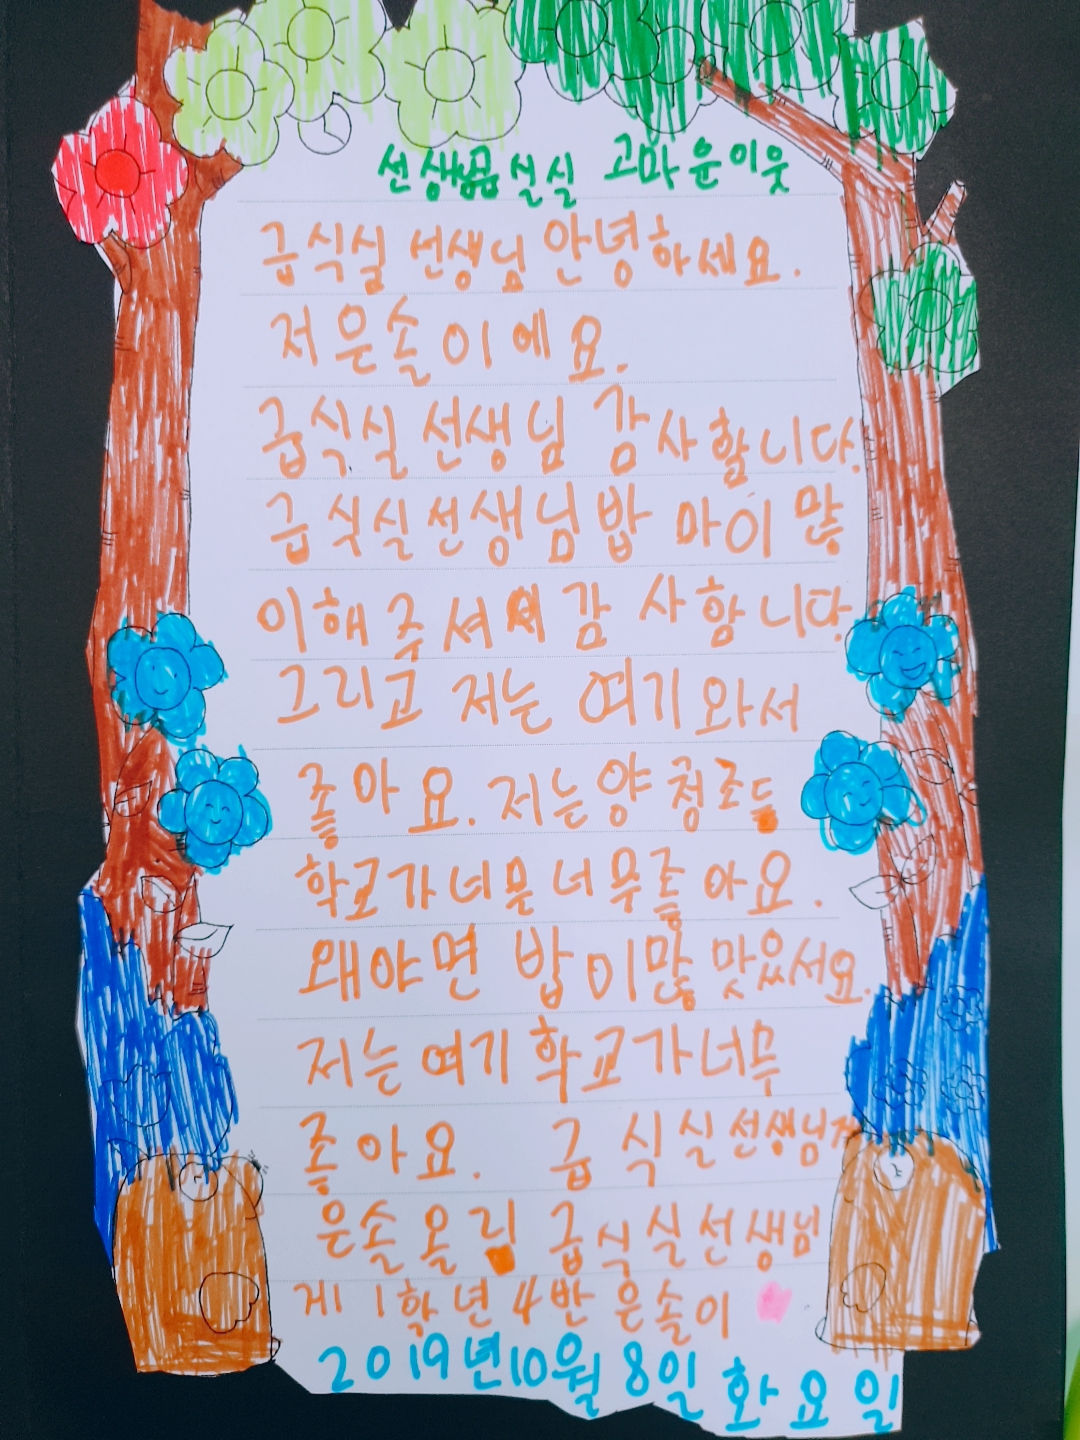 선생님 급식실 고마운 이웃
급식실 선생님 안녕하세요.
저 은솔이에요.
급식실 선생님 감사합니다.
급식실 선생님 밥 마이 많
이 해주셔서 감사합니다.
그리고 저는 여기 와서
좋아요. 저는 양청초등
학교가 너무 너무 좋아요.
왜야면 밥이 많 맛있서요.
저는 여기 학교가 너무
좋아요. 급식실 선생님게
은솔 올림 급식실 선생님
게 1학년 4반 은솔이
2019년 10월 8일 화요일